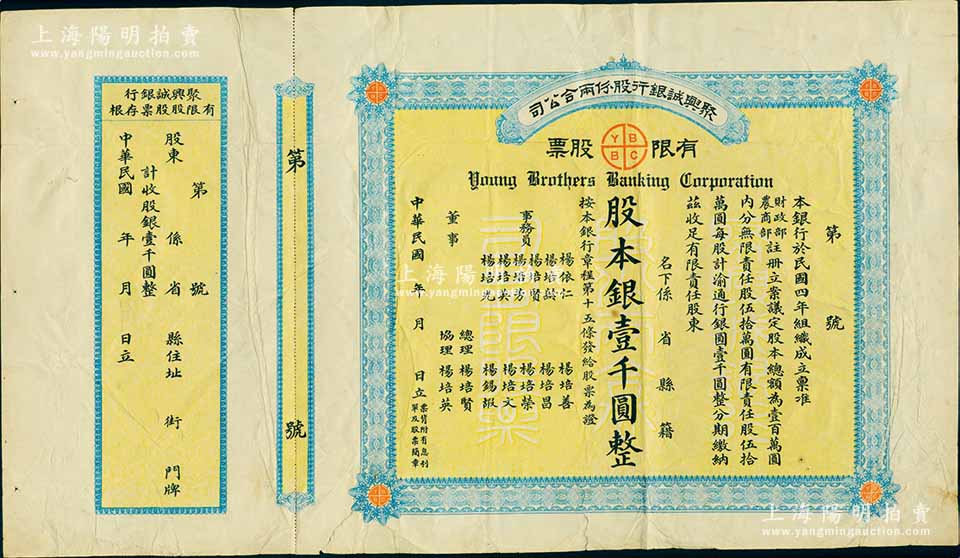 上海陽明拍賣
www.yangmingauction.com
上海陽明拍賣
www.yangmingauction.com
聚興誠銀行股份兩合公司
有限
股票
Y B
B C
Young Brothers Banking Corporation
第 號
本銀行於民國四年組織成立稟准
財政部
農商部
註册立案議定股本總額為壹百萬圓
內分無限責任股伍拾萬圓有限責任股伍拾
萬圓每股計渝通行銀圓壹千圓整分期繳納
茲收足有限責任股東
名下係 省 縣 籍
股本銀壹千圓整
按本銀行章程第十五條發給股票為證
事務員
楊依仁
楊培賢
楊培英
楊培光
楊培善
楊培昌
楊培榮
楊培文
楊錫嘏
董事
總理 楊培賢
協理 楊培英
中華民國 年 月 日立
票背附有息刊
單及股票簡章
第 號
聚興誠銀行
有限股股票存根
第 號
股東 係 省 縣住址 街 門牌
計收股銀壹千圓整
中華民國 年 月 日立
上海陽明拍賣
www.yangmingauction.com
上海陽明拍賣
www.yangmingauction.com